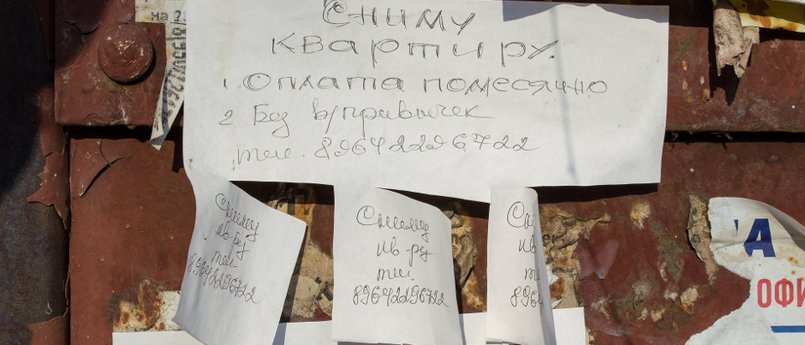 Сниму
квартиру.
1. Оплата помесячно
2 Без в/привычек
тел. 89642296722
Сниму
кв-ру
тел.
89642296722
Сниму
кв-ру
тел.
89642296722
Сн
кв
те
896
А
ОФИ